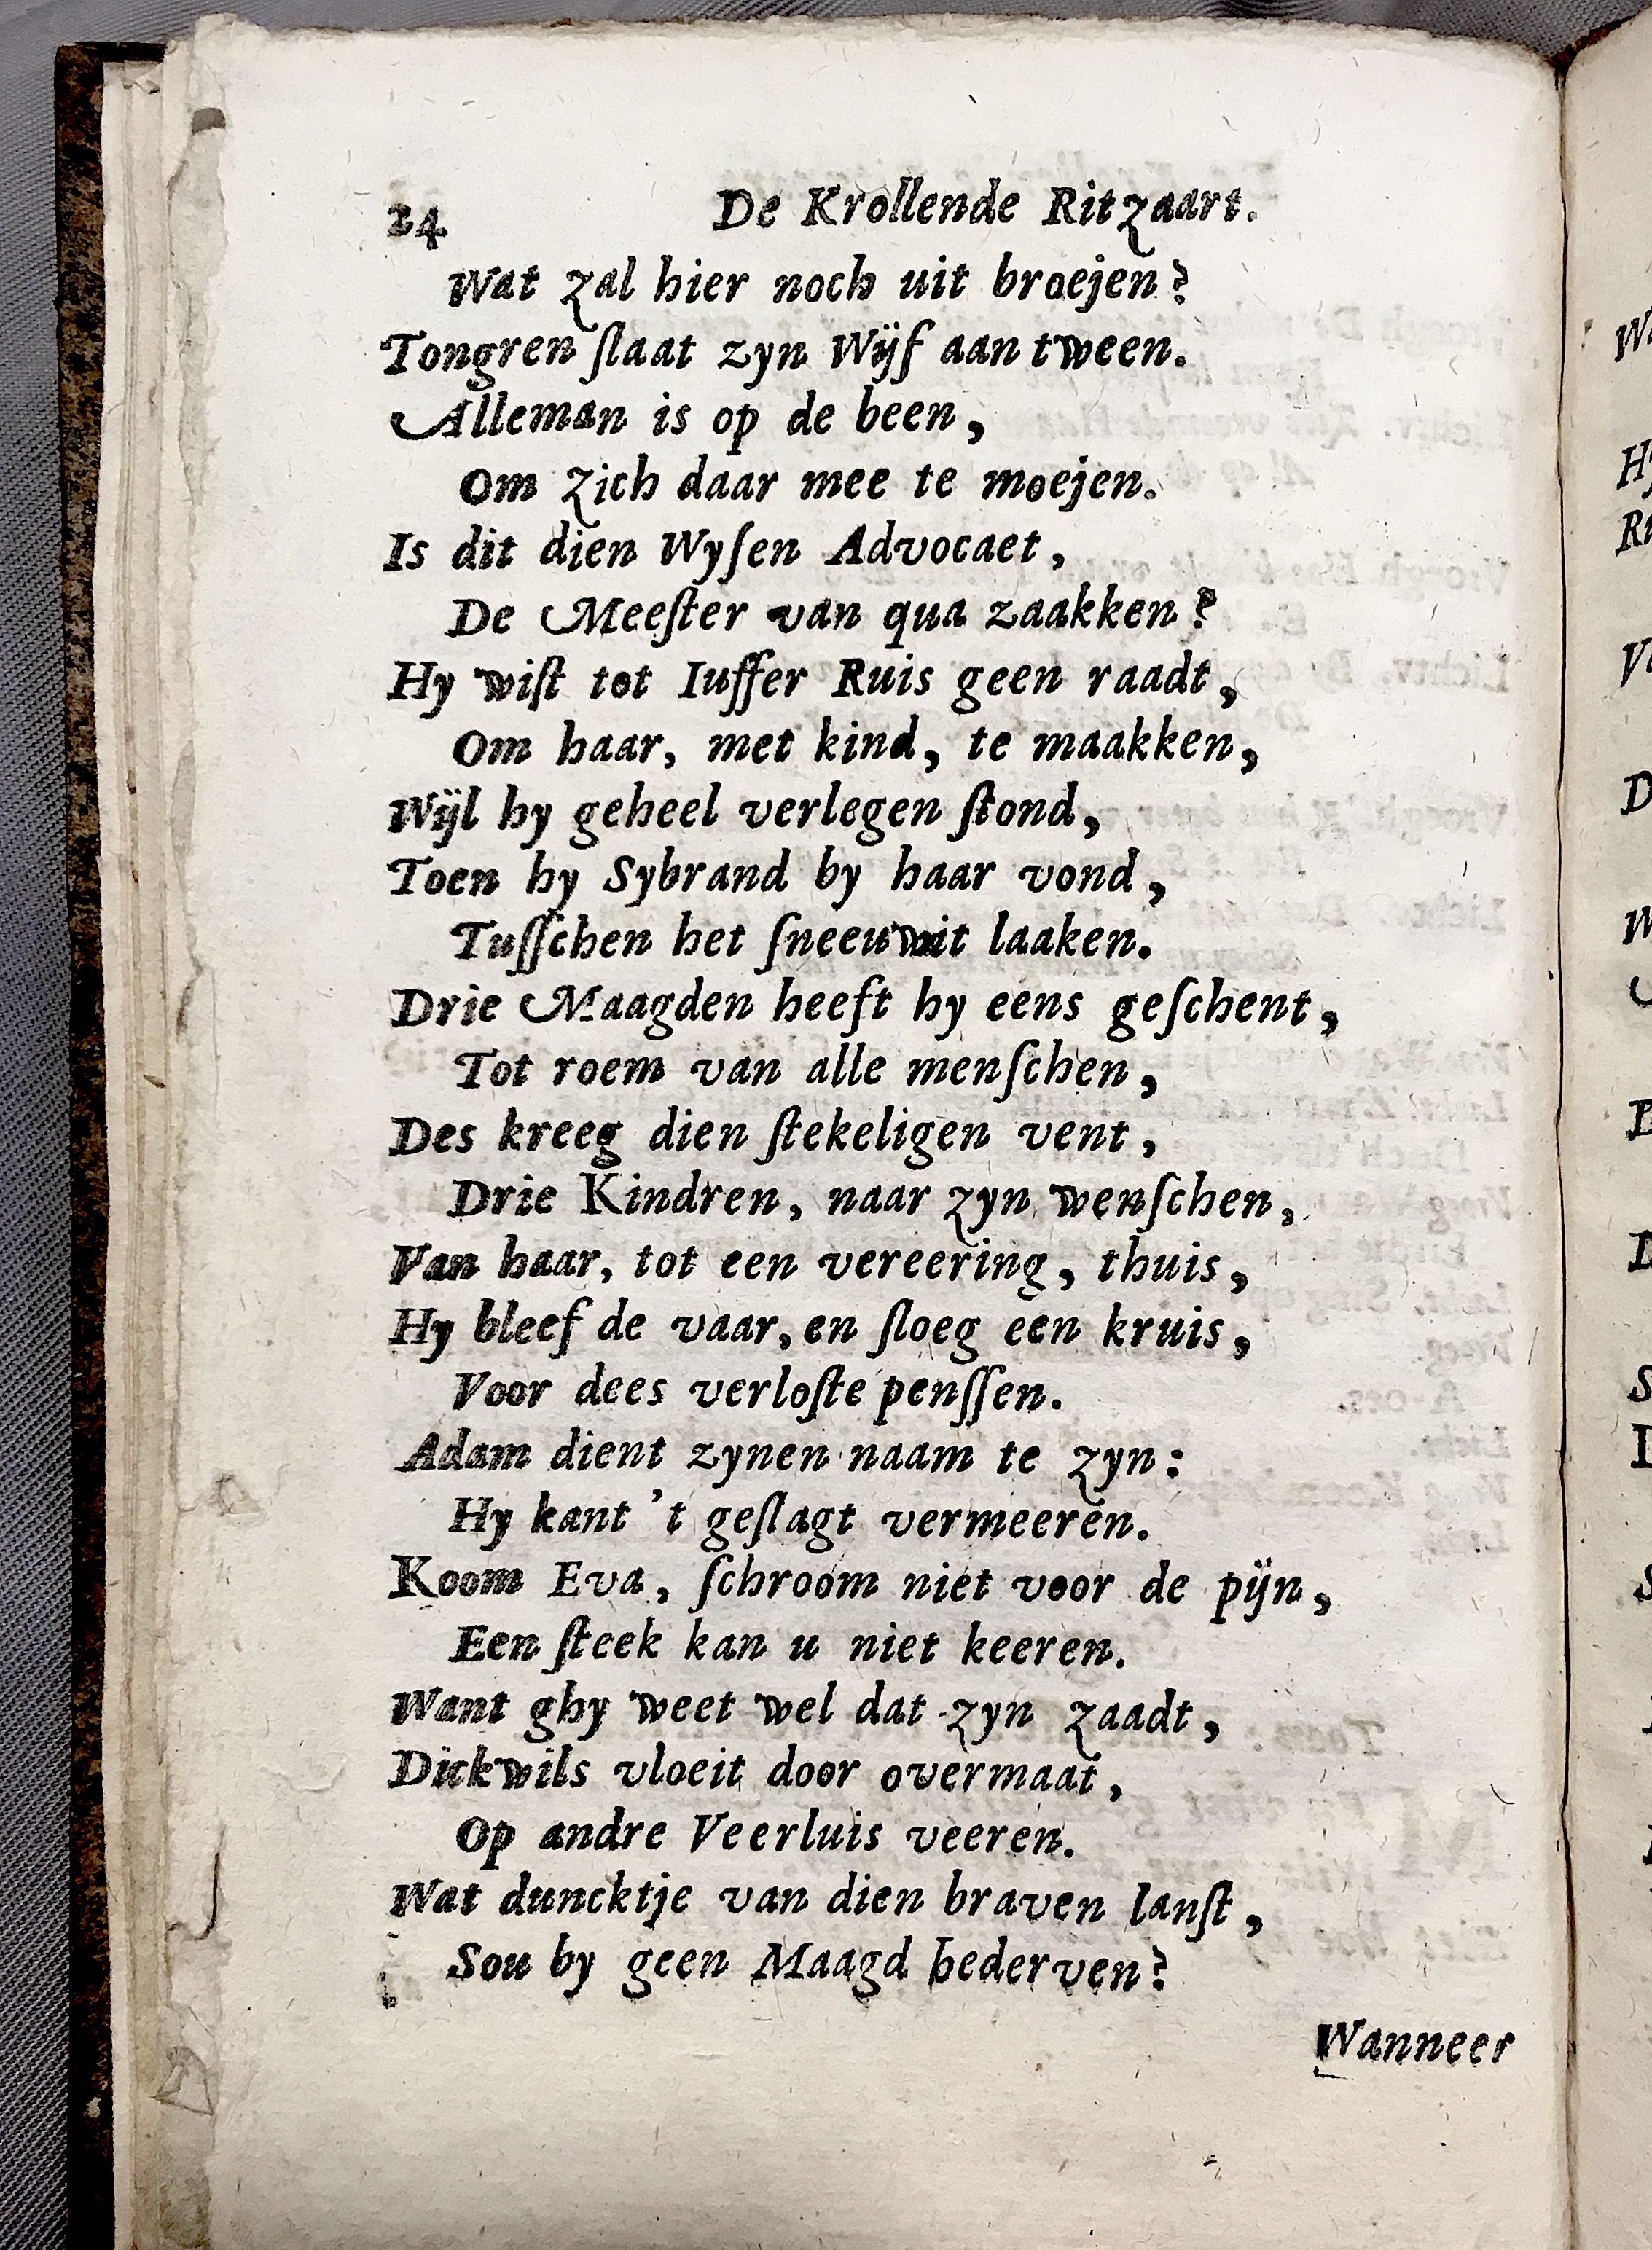 24 De Krollende Ritzaart.
Wat zal hier noch uit broejen?
Tongren ſlaat zyn Wijf aan tween.
Alleman is op de been,
Om zich daar mee te moejen.
Is dit dien Wyſen Advocaet,
De Meeſter van qua zaakken?
Hy wiſt tot Iuffer Ruis geen raadt,
Om haar, met kind, te maakken,
Wijl hy geheel verlegen ſtond,
Toen hy Sybrand by haar vond,
Tuſſchen het ſneeuwit laaken.
Drie Maagden heeft hy eens geſchent,
Tot roem van alle menſchen,
Des kreeg dien ſtekeligen vent,
Drie Kindren, naar zyn wenſchen,
Van haar, tot een vereering, thuis,
Hy bleef de vaar, en ſloeg een kruis,
Voor dees verloſte penſſen.
Adam dient zynen naam te zyn:
Hy kant 't geſlagt vermeeren.
Koom Eva, ſchroom niet voor de pijn,
Een ſteek kan u niet keeren.
Want ghy weet wel dat zyn zaadt,
Dickwils vloeit door overmaat,
Op andre Veerluis veeren.
Wat duncktje van dien braven lanſt,
Sou hy geen Maagd bederven?
Wanneer